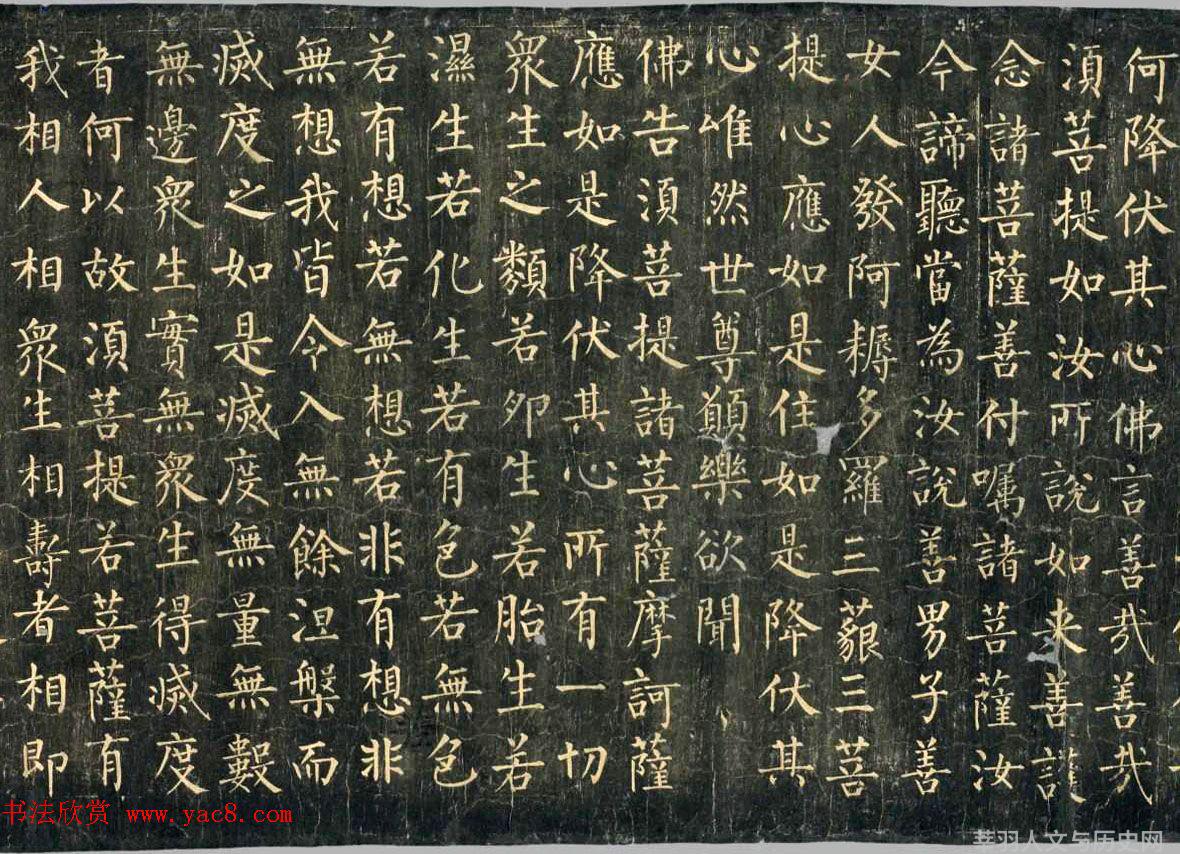 何降伏其心佛言善哉善哉
須菩提如汝所說如来善護
念諸菩薩善付嘱諸菩薩汝
今諦聽當為汝說善男子善
女人發阿耨多羅三藐三菩
提心應如是住如是降伏其
心唯然世尊願樂欲聞
佛告須菩提諸菩薩摩訶薩
應如是降伏其心所有一切
衆生之類若卵生若胎生若
濕生若化生若有色若無色
若有想若無想若非有想非
無想我皆令入無餘涅槃而
滅度之如是滅度無量無數
無邊衆生實無衆生得滅度
者何以故須菩提若菩薩有
我相人相衆生相壽者相即
书法欣赏 www.yac8.com
芸羽人文与历史网